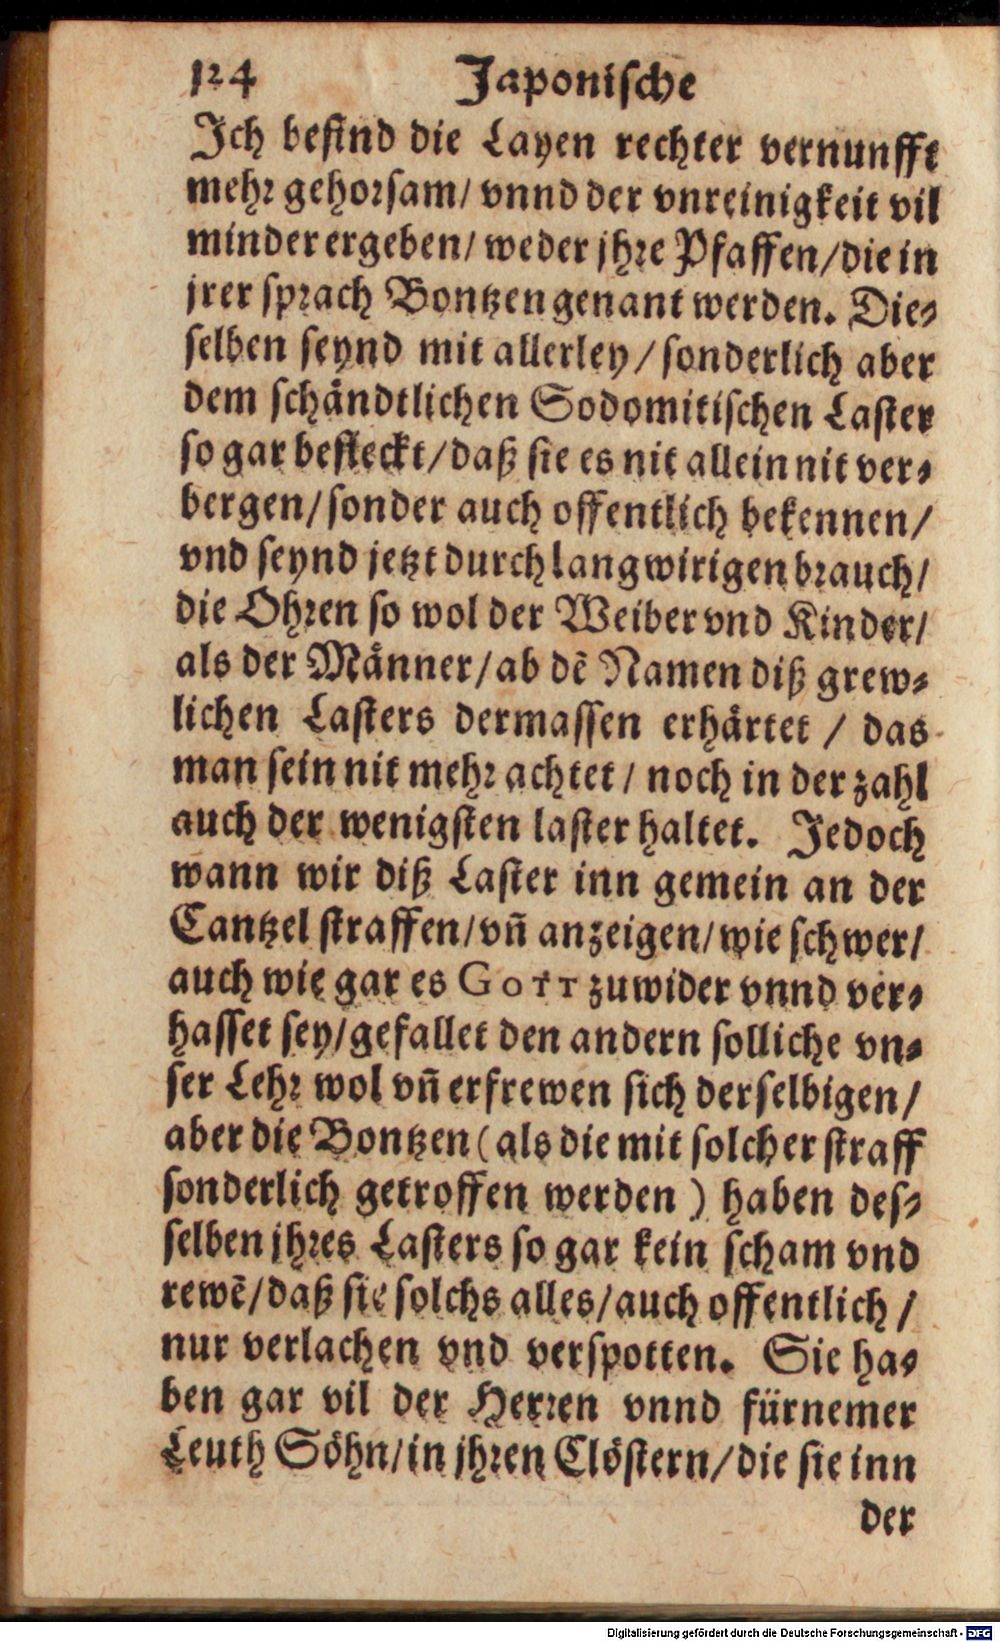 124 Japonische
Ich befind die Layen rechter vernunfft
mehr gehorsam/ vnnd der vnreinigkeit vil
minder ergeben/ weder jhre Pfaffen/die in
jrer sprach Bontzen genant werden. Die-
selben seynd mit allerley/sonderlich aber
dem schändtlichen Sodomitischen Laster
so gar befleckt/daß sie es nit allein nit ver-
bergen/sonder auch offentlich bekennen/
vnd seynd jetzt durch langwirigen brauch/
die Ohren so wol der Weiber vnd Kinder/
als der Männer/ab dē Namen diß grew-
lichen Lasters dermassen erhärtet / das
man sein nit mehr achtet/ noch in der zahl
auch der wenigsten laster haltet. Jedoch
wann wir diß Laster inn gemein an der
Cantzel straffen/vñ anzeigen/wie schwer/
auch wie gar es GOTT zuwider vnnd ver-
hasset sey/gefallet den andern solliche vn-
ser Lehr wol vñ erfrewen sich derselbigen/
aber die Bontzen (als die mit solcher straff
sonderlich getroffen werden ) haben des-
selben jhres Lasters so gar kein scham vnd
rewē/daß sie solchs alles/auch offentlich /
nur verlachen vnd verspotten. Sie ha-
ben gar vil der Herren vnnd fürnemer
Leuth Söhn/in jhren Clöstern/die sie inn
der
Digitalisierung gefördert durch die Deutsche Forschungsgemeinschaft - DFG